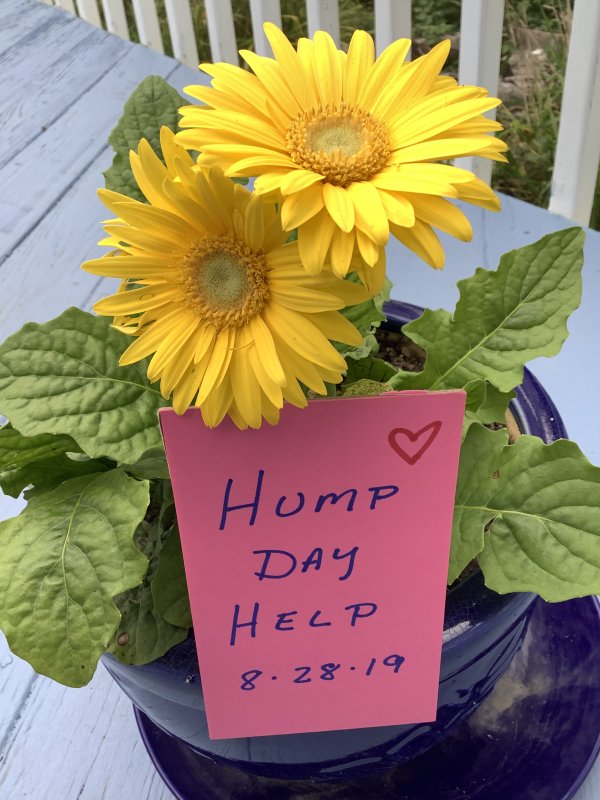 Hump
Day
Help
8.28.19